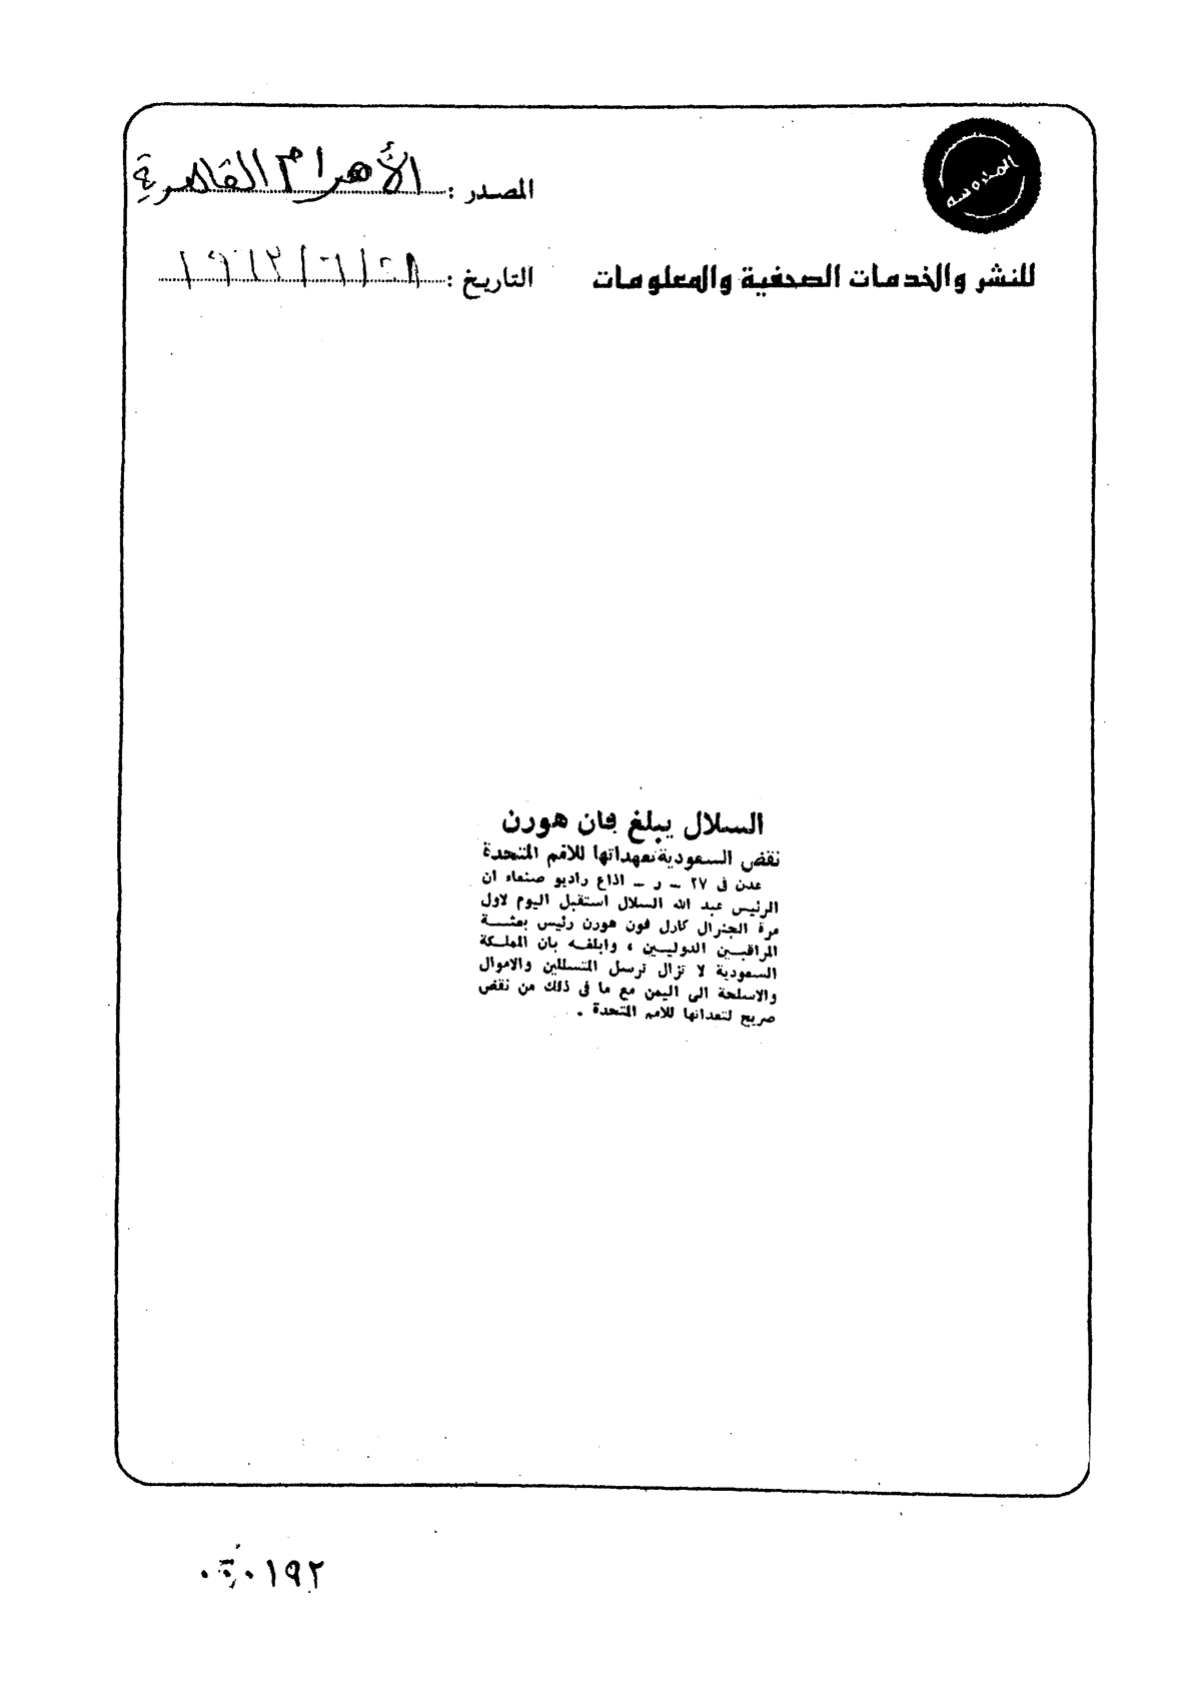 المصدر : الأهرام القاهرية
للنشر والخدمات الصحفية والمعلومات
التاريخ :
السلال يبلغ فان هورن
نقض السعودية تعهداتها للامم المتحدة
عدن فى ٢٧ ــ ر ــ اذاع راديو صنعاء ان
الرئيس عبد الله السلال استقبل اليوم لاول
مرة الجنرال كارل فون هورن رئيس بعثــة
المراقبــين الدوليــين ، وابلغــه بان المملـكة
السعودية لا تزال ترسل المتسللين والاموال
والاسلحة الى اليمن مع ما فى ذلك من نقض
صريح للامم المتحدة .